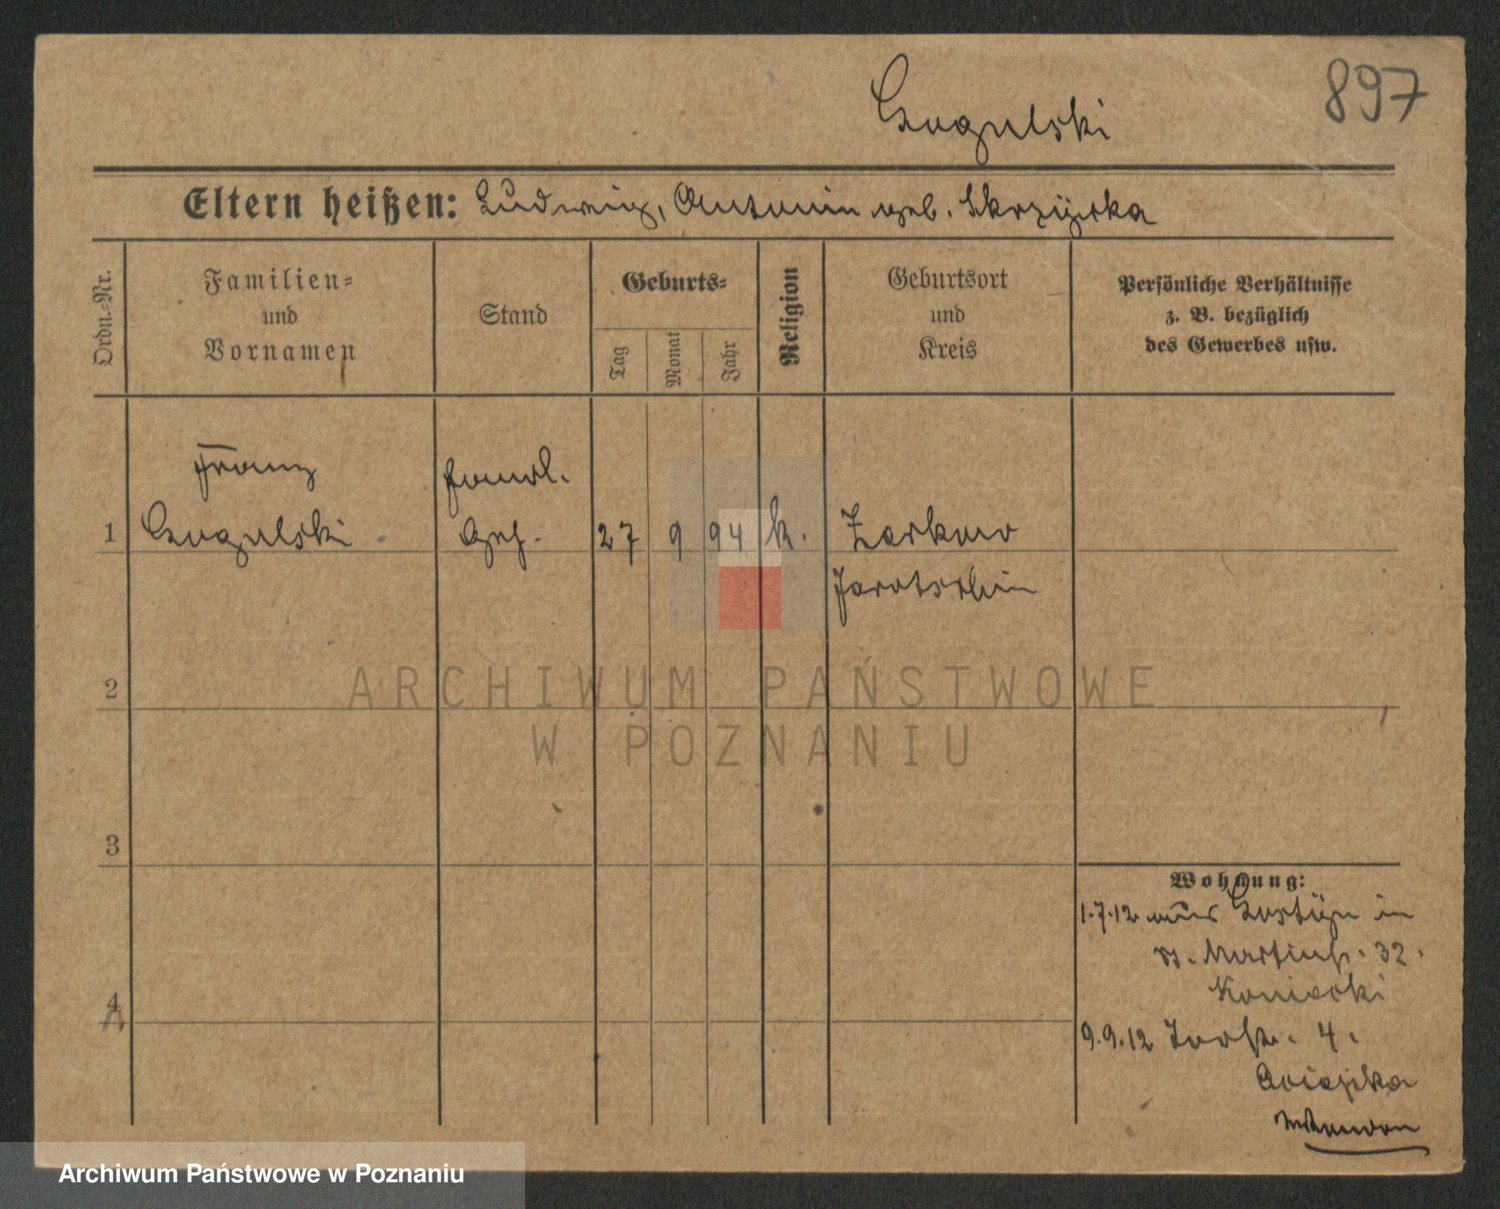 897
Gogulski
Eltern heißen: Ludwig, Antonin geb. Skrzyjska
Ordn.-Nr.
Familien-
und
Vornamen
Stand
Geburts-
Tag
Monat
Jahr
Religion
Geburtsort
und
Kreis
Persönliche Verhältnisse
z. B. bezüglich
des Gewerbes usw.
Franz
Handl.
1 Gogulski Geh. 27 9 94 k. Zerkow
Jarotschin
ARCHIWUM PAŃSTWOWE
W POZNANIU
2
3
4
Wohnung:
1.7.12 aus Gostyn in
St. Martinstr. 32.
Koniecki
9.9.12 Torstr. 4.
Archiwum Państwowe w Poznaniu